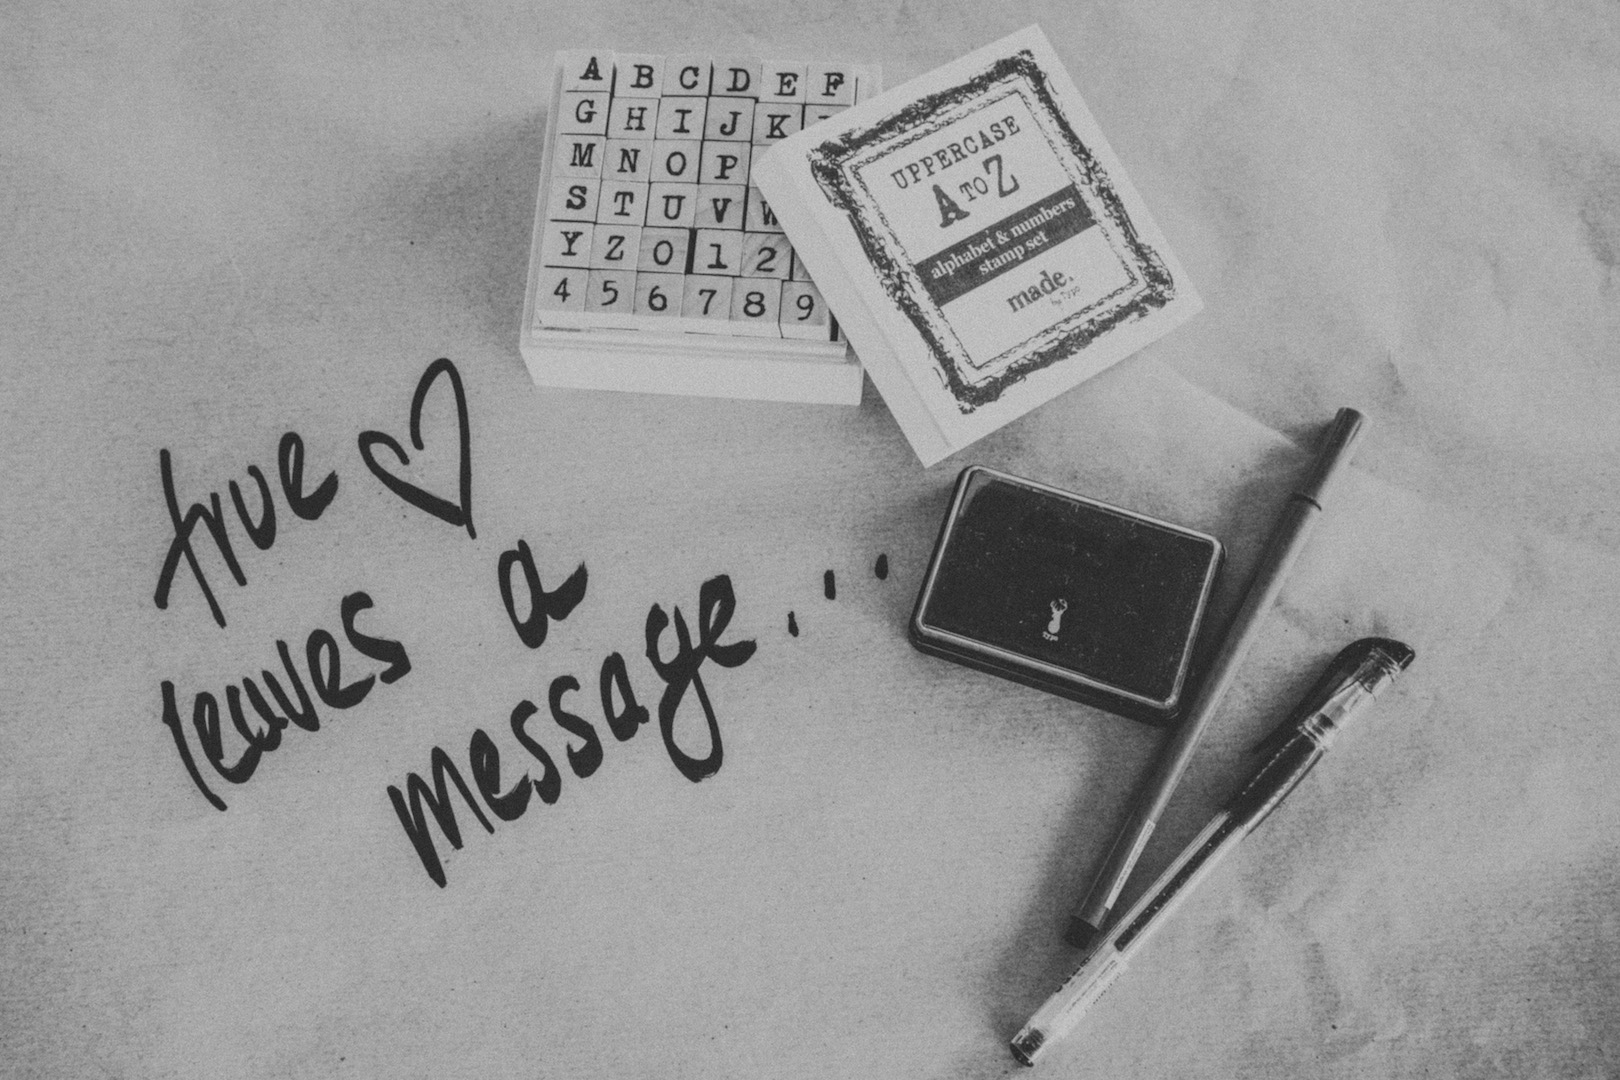 A B C D E F
G H I J K
M N O P
S T U V W
Y Z 0 1 2
4 5 6 7 8 9
UPPERCASE
A TO Z
alphabet & numbers
stamp set
made.
by Typo
Typo
true ♡
leaves a
message...